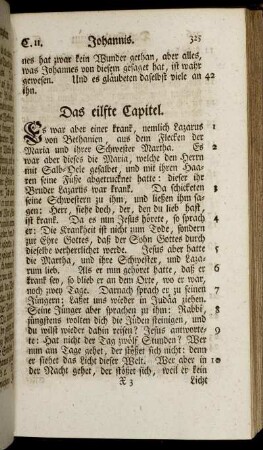 C. 11. Johannis. 325
nes hat zwar kein Wunder gethan, aber alles,
was Johannes von diesem gesaget hat, ist wahr
gewesen. Und es gläubeten daselbst viele an 42
ihn.
Das eilfte Capitel.
Es war aber einer krank, nemlich Lazarus 1
von Bethanien, aus dem Flecken der
Maria und ihrer Schwester Martha. Es 2
war aber dieses die Maria, welche den Herrn
mit Salb-Oele gesalbet, und mit ihren Haa-
ren seine Füße abgetrucknet hatte: dieser ihr
Bruder Lazarus war krank. Da schicketen 3
seine Schwestern zu ihm, und ließen ihm sa-
gen: Herr, siehe doch, der, den du lieb hast,
ist krank. Da es nun Jesus hörete, so sprach 4
er: Die Krankheit ist nicht zum Tode, sondern
zur Ehre Gottes, daß der Sohn Gottes durch
dieselbe verherrlichet werde. Jesus aber hatte 5
die Martha, und ihre Schwester, und Laza-
rum lieb. Als er nun gehöret hatte, daß er 6
krank sey, so blieb er an dem Orte, wo er war,
noch zwey Tage. Darnach sprach er zu seinen 7
Jüngern: Laßet uns wieder in Judäa ziehen.
Seine Jünger aber sprachen zu ihm: Rabbi, 8
jüngstens wolten dich die Jüden steinigen, und
du wilst wieder dahin reisen? Jesus antworte- 9
te: Hat nicht der Tag zwölf Stunden? Wer
nun am Tage gehet, der stößet sich nicht: denn
er siehet das Licht dieser Welt. Wer aber in 10
der Nacht gehet, der stößet sich, weil er kein
X 3 Licht